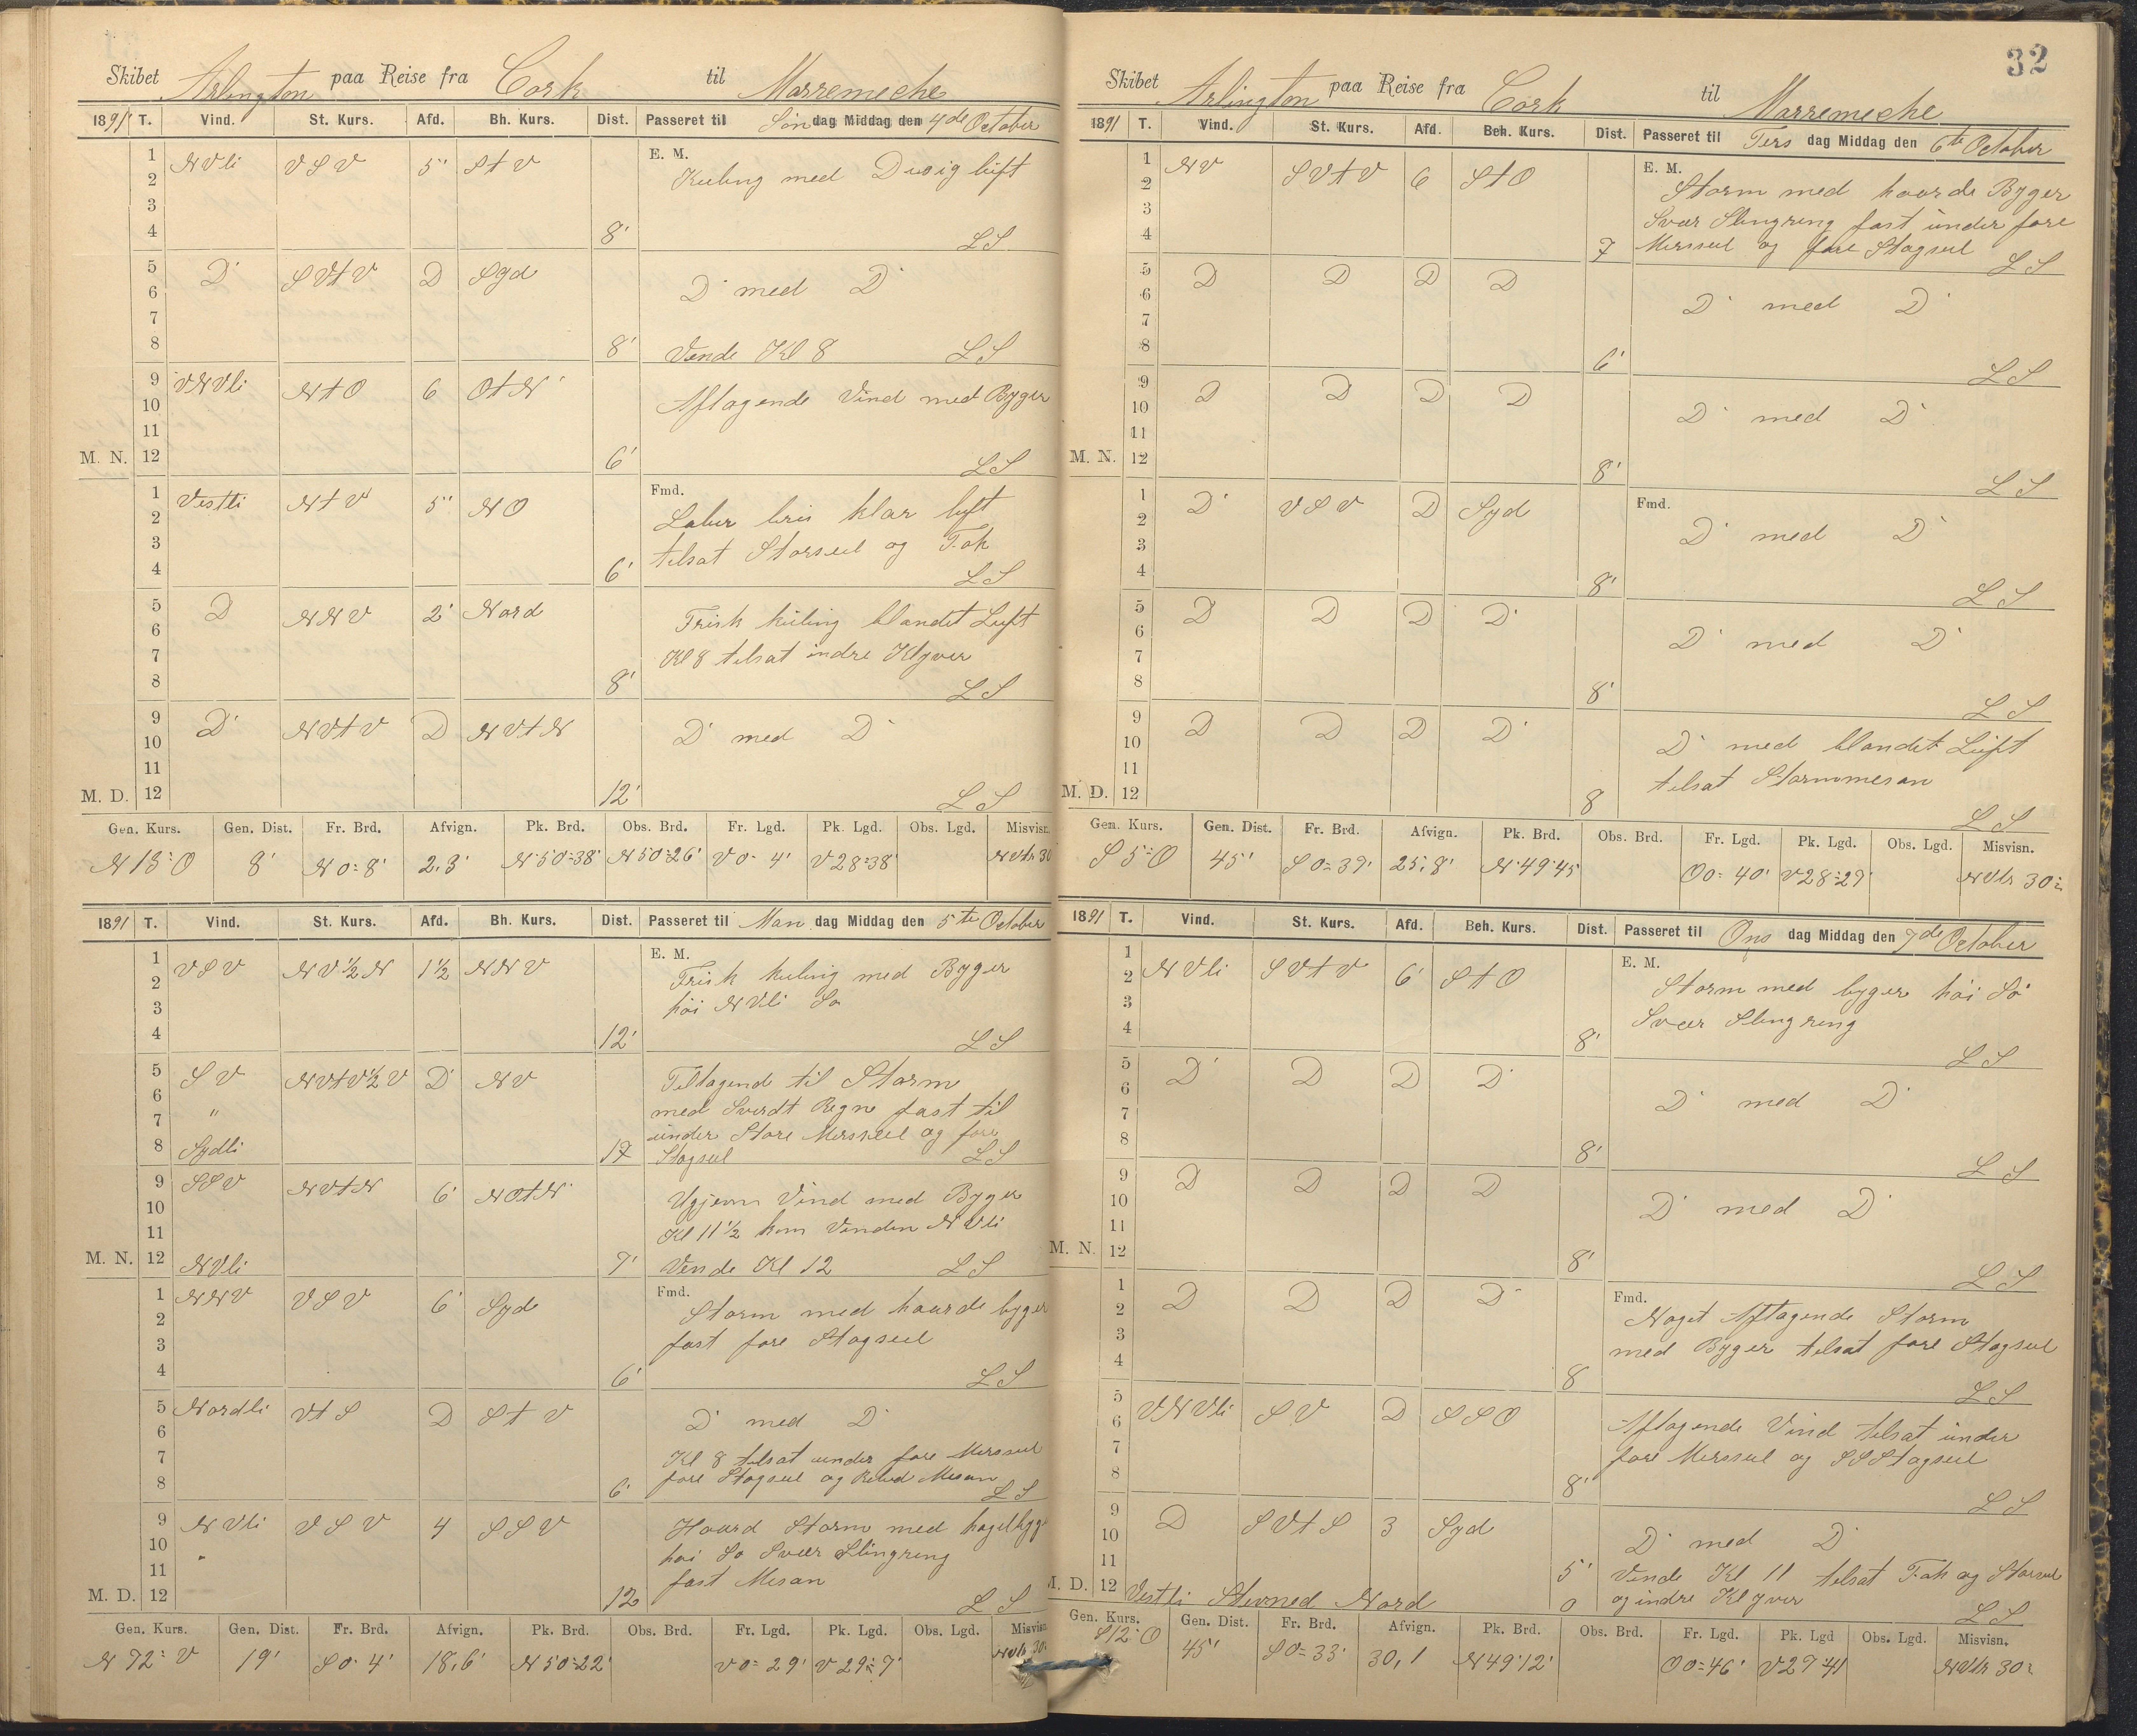 Skibet Arlington paa Reise fra Cork til Marremeche
1891 T. Vind. St. Kurs. Afd. Bh. Kurs. Dist. Passeret til Søndag Middag den 4de October
1 NVli VSV 5' StV E. M.
2 Kuling med Disig luft
3
4 8' LS
5 D SVtV D Syd
6 D med D
7
8 8' Vende Kl 8 LS
9 VNVli NtO 6 OtN
10 Aftagende Vind med Byger
11
M. N. 12 6' LS
1 Vestli NtV 5' NO Fmd.
2 Laber bris klar luft
3 tilsat Storseil og Fok
4 6' LS
5 D NNV 2' Nord
6 Frisk kuling blandet Luft
7 Kl 8 tilsat indre Klyver
8 8' LS
9 D NVtV D NVtN
10 D med D
11
M. D. 12 12' LS
Gen. Kurs. Gen. Dist. Fr. Brd. Afvign. Pk. Brd. Obs. Brd. Fr. Lgd. Pk. Lgd. Obs. Lgd. Misvisn.
N 18° O 8' N 0° 8' 2,3' N 50°38' N 50°26' V 0° 4' V 28°38' NVtr 30
1891 T. Vind. St. Kurs. Afd. Bh. Kurs. Dist. Passeret til Man dag Middag den 5te October
1 VSV NV½N 1½ NNV E. M.
2 Frisk kuling med Byger
3 höi NVli Sö
4 12' LS
5 SV NVtV½V D NV Tiltagende til Storm
6 med Sverdt Regn fast til
7 " under Store Mersseil og fore
8 Sydli 17 Stagseil LS
9 SSV NVtN 6' NOtN
10 Ugjevn Vind med Byger
11 Kl 11½ kom Vinden NVli
M. N. 12 NVli 7' Vende Kl 12 LS
1 NNV VSV 6' Syd Fmd.
2 Storm med haarde byger
3 fast fore Stagseil
4 6' LS
5 Nordli VtS D StV
6 D med D
7 Kl 8 tilsat under fore Mersseil
8 6' fore Stagseil og Mesan LS
9 NVli VSV 4 SSV Haard Storm med hagelbyg
10 " höi Sö Svær Slingring
11 fast Mesan
M. D. 12 12 LS
Gen. Kurs. Gen. Dist. Fr. Brd. Afvign. Pk. Brd. Obs. Brd. Fr. Lgd. Pk. Lgd. Obs. Lgd. Misvisn.
N 72° V 19' S 0° 4' 18,6' N 50°22' V 0° 29' V 29° 7' NVtr 30
32
Skibet Arlington paa Reise fra Cork til Marremeche
1891 T. Vind. St. Kurs. Afd. Beh. Kurs. Dist. Passeret til Tirsdag Middag den 6te October
1 NV SVtV 6 StO E. M.
2 Storm med haarde Byger
3 Svær Slingring fast under fore
4 7 Mersseil og fore Stagseil LS
5 D D D D
6 D med D
7
8 6' LS
9 D D D D
10 D med D
11
M. N. 12 8' LS
1 D VSV D Syd Fmd.
2 D med D
3
4 8' LS
5 D D D D
6 D med D
7
8 8' LS
9 D D D D
10 D med blandet Luft
11 tilsat Stormmesan
M. D. 12 8 LS
Gen. Kurs. Gen. Dist. Fr. Brd. Afvign. Pk. Brd. Obs. Brd. Fr. Lgd. Pk. Lgd. Obs. Lgd. Misvisn.
S 5° O 45' S 0° 39' 25,8' N 49°45' O 0° 40' V 28°29' NVtr 30
1891 T. Vind. St. Kurs. Afd. Beh. Kurs. Dist. Passeret til Ons dag Middag den 7de October
1 E. M.
2 NVli SVtV 6' StO Storm med byger höi Sö
3 Svær Slingring
4 8' LS
5 D D D D
6 D med D
7
8 8' LS
9 D D D D
10 D med D
11
M. N. 12 8' LS
1 D D D D Fmd.
2 Noget Aftagende Storm
3 med Byger tilsat fore Stagseil
4 8 LS
5
6 VNVli SV D SSO Aftagende Vind tilsat under
7 fore Mersseil og SSStagseil
8 8' LS
9 D SVtS 3 Syd
10 D med D
11 5' Vende Kl 11 tilsat Fok og Storseil
M. D. 12 Vestli Stevned Nord 0 og indre Klyver LS
Gen. Kurs. Gen. Dist. Fr. Brd. Afvign. Pk. Brd. Obs. Brd. Fr. Lgd. Pk. Lgd Obs. Lgd. Misvisn.
S 12° O 45' S 0° 33' 30,1 N 49°12' O 0° 46' V 27°41 NVtr 30